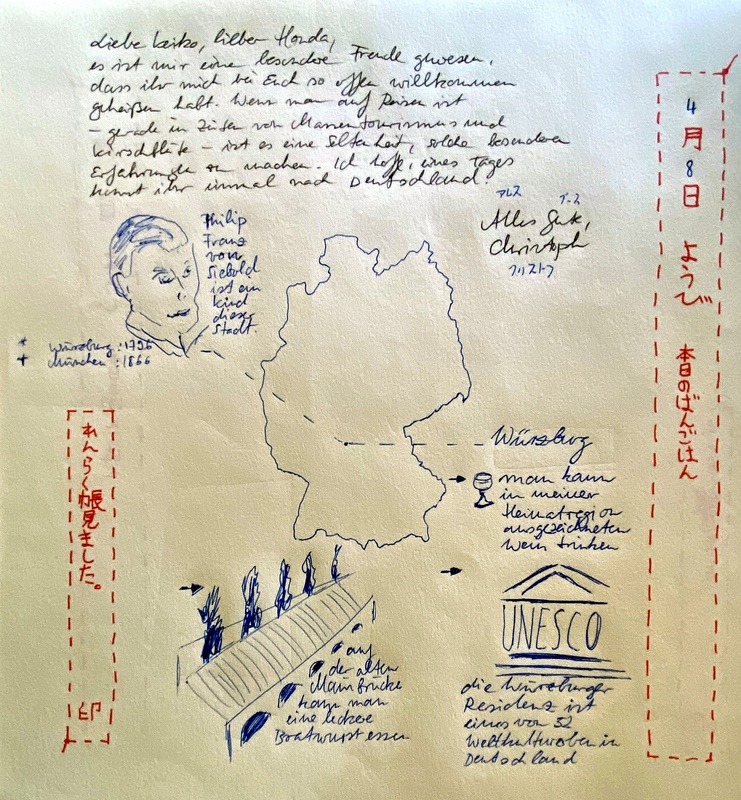 Liebe Keiko, lieber Honda,
es ist mir eine besondere Freude gewesen,
dass ihr mich bei Euch so offen willkommen
geheißen habt. Wenn man auf Reisen ist
– gerade in Zeiten von Massentourismus und
Kirschblüte – ist es eine Seltenheit, solche besonderen
Erfahrungen zu machen. Ich hoffe, eines Tages
kommt ihr einmal nach Deutschland.
アレス グース
Alles Gute,
Christoph
クリストフ
Philip
Franz
von
Siebold
ist ein
Kind
dieser
Stadt.
* Würzburg: 1796
+ München: 1866
Würzburg
man kann
in meiner
Heimatregion
ausgezeichneten
Wein trinken
auf
der alten
Mainbrücke
kann man
eine leckere
Bratwurst essen
UNESCO
die Würzburger
Residenz ist
eines von 52
Weltkulturerben in
Deutschland
4月8日 ようび 本日のばんごはん
れんらく帳見ました。 印